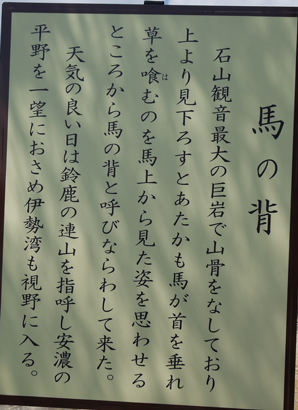 馬の背
石山観音最大の巨岩で山骨をなしており
上より見下ろすとあたかも馬が首を垂れ
草を喰むのを馬上から見た姿を思わせる
は
ところから馬の背と呼びならわして来た。
天気の良い日は鈴鹿の連山を指呼し安濃の
平野を一望におさめ伊勢湾も視野に入る。